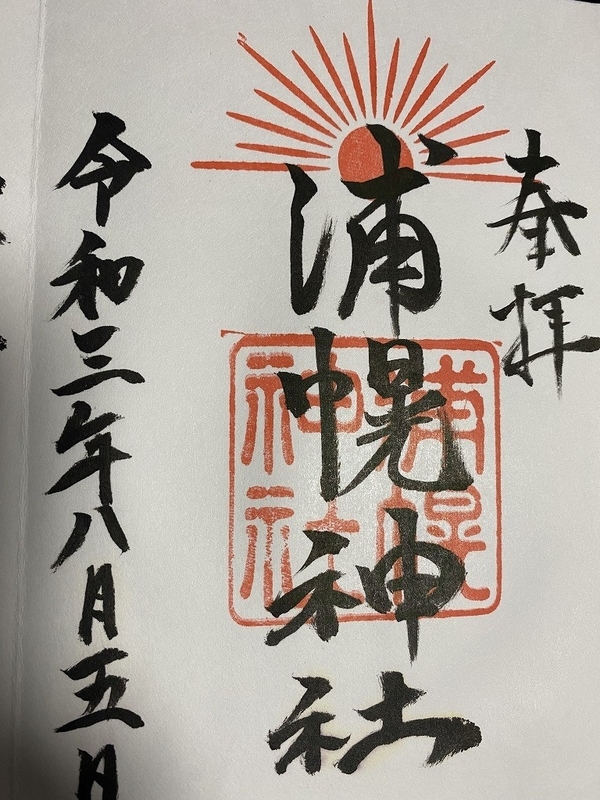 奉拝
浦幌神社
浦幌
神社
令和三年八月五日